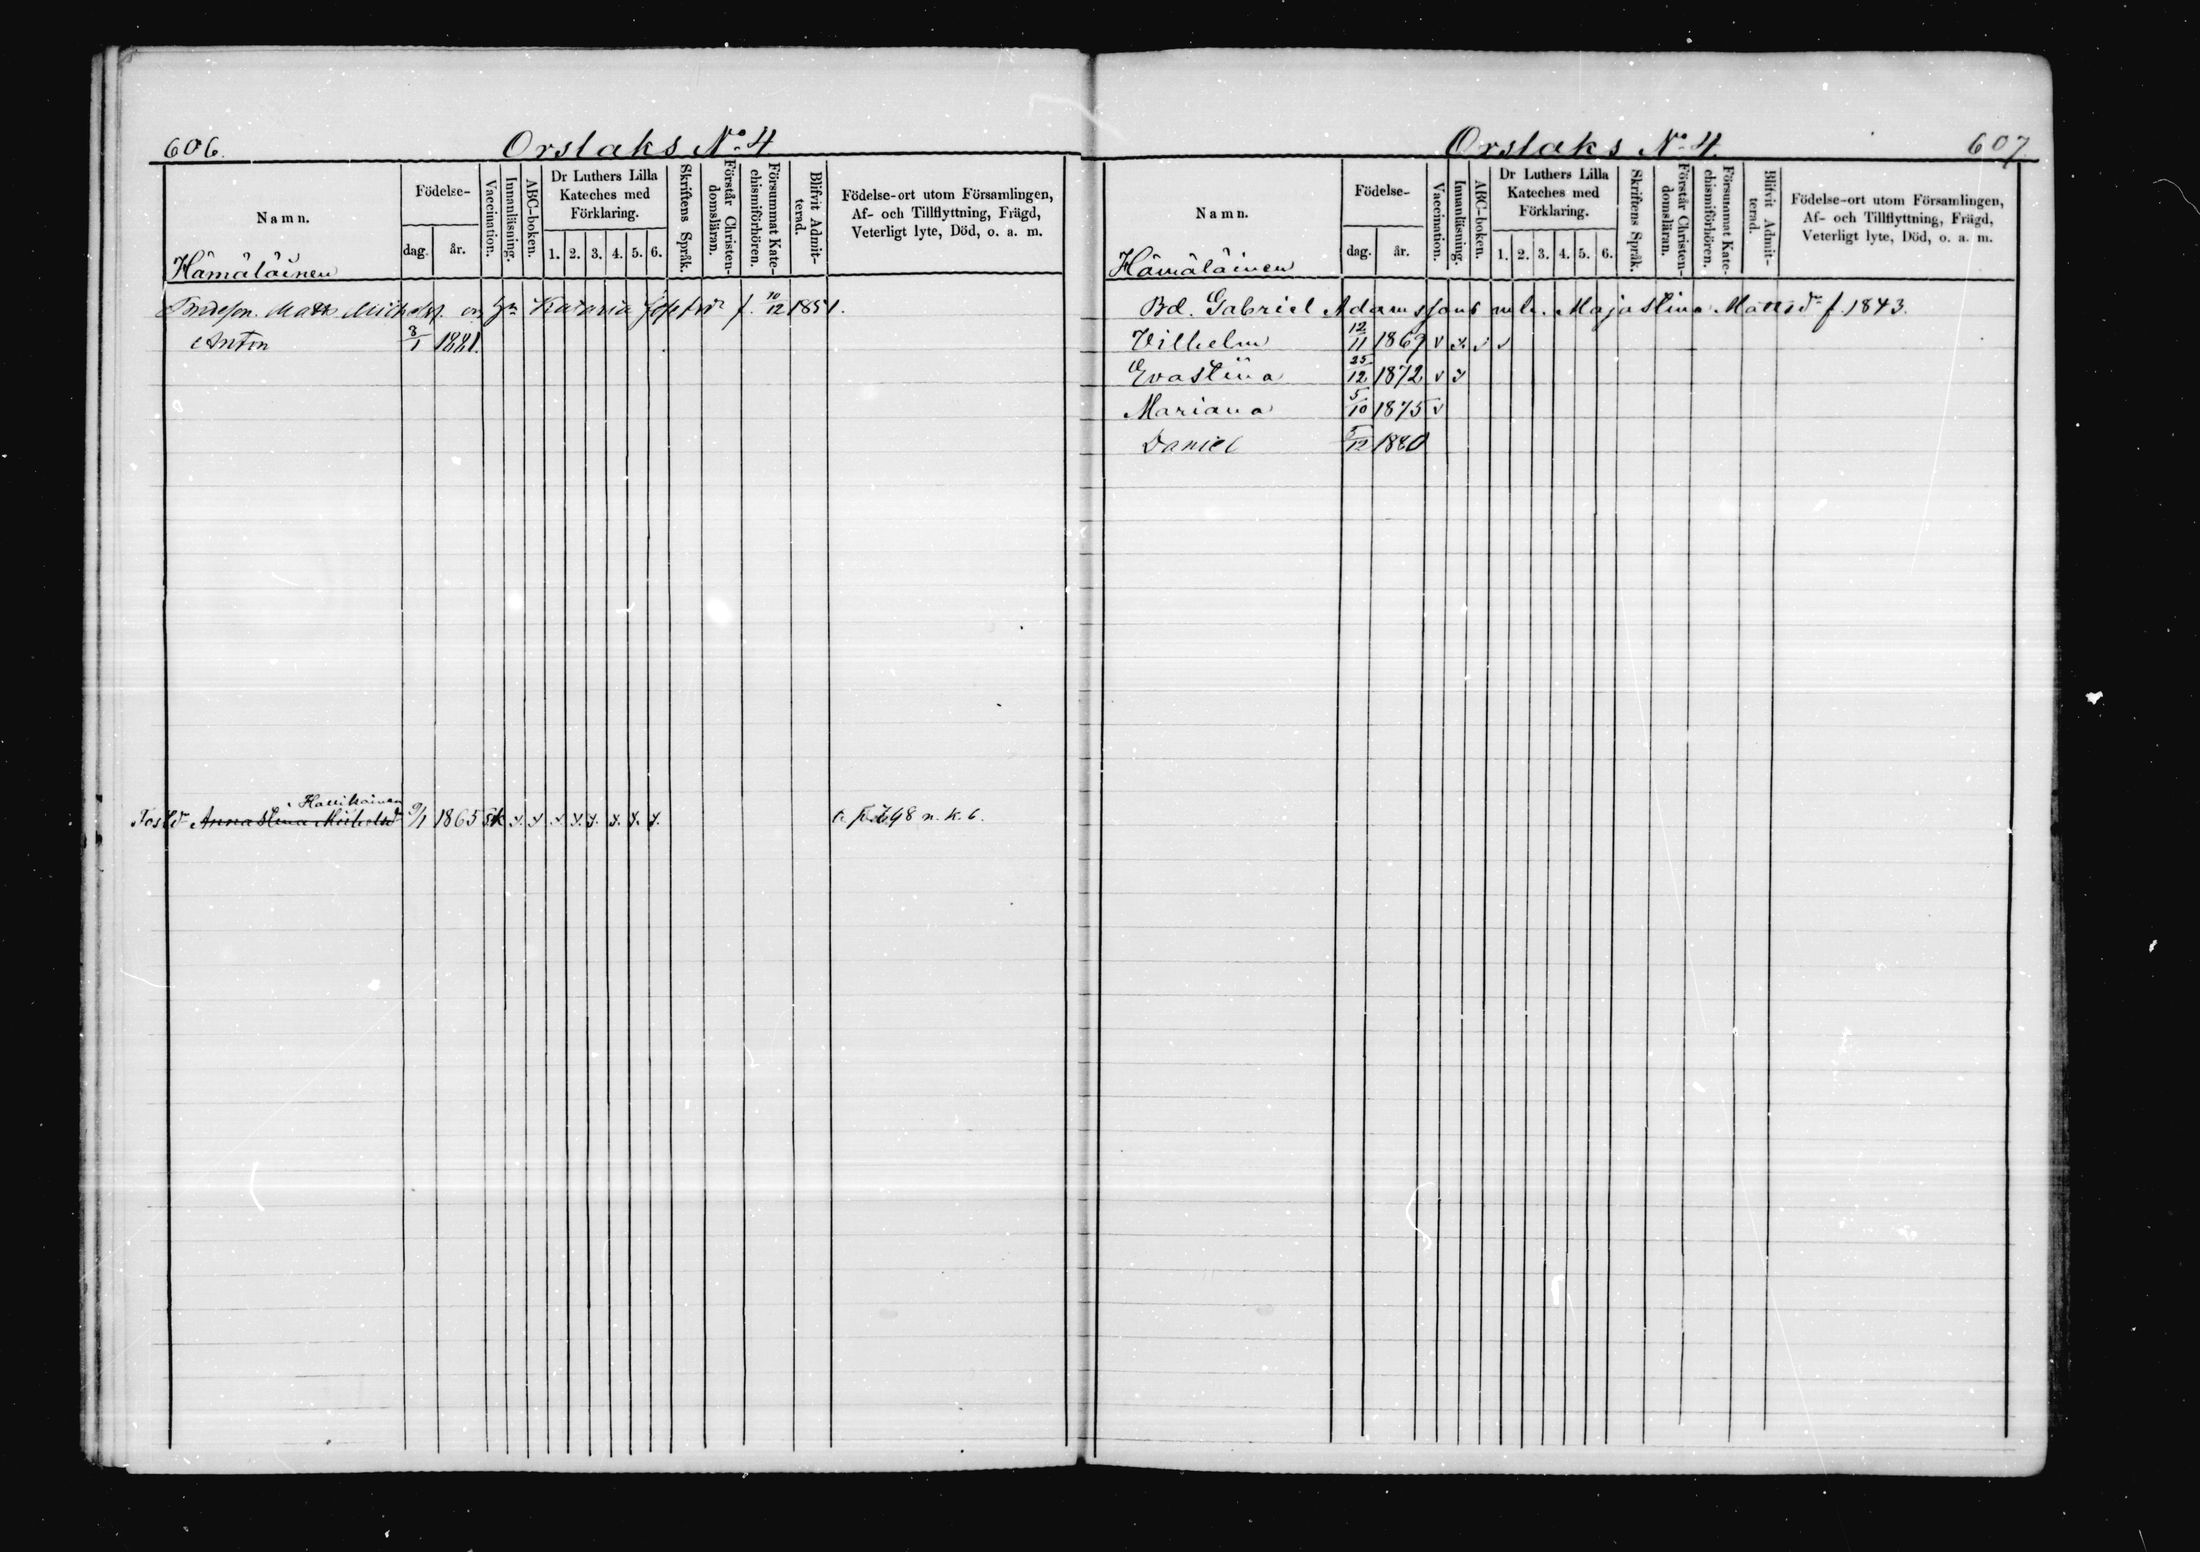 606. Orslaks No 4
Namn.
Födelse-
dag. år.
Vaccination.
Innanläsning.
ABC-boken.
Dr Luthers Lilla
Kateches med
Förklaring.
1. 2. 3. 4. 5. 6.
Skriftens Språk.
Förstår Christen-
domsläran.
Försummat Kate-
chismiförhören.
Blifvit Admit-
terad.
Födelse-ort utom Församlingen,
Af- och Tillflyttning, Frägd,
Veterligt lyte, Död, o. a. m.
Hämäläinen
Matts f. 10/12 1851.
Anton 8/1 1881.
Hallikainen
Anna Stina Michelsdr 9/1 1865 n. k. 6.
Orslaks No 4. 607
Namn.
Födelse-
dag. år.
Vaccination.
Innanläsning.
ABC-boken.
Dr Luthers Lilla
Kateches med
Förklaring.
1. 2. 3. 4. 5. 6.
Skriftens Språk.
Förstår Christen-
domsläran.
Försummat Kate-
chismiförhören.
Blifvit Admit-
terad.
Födelse-ort utom Församlingen,
Af- och Tillflyttning, Frägd,
Veterligt lyte, Död, o. a. m.
Hämäläinen
Bd. Gabriel Adamssons m. h. Maja Stina Mattsdr f. 1843.
Vilhelm 12/11 1869 v
Eva Stina 25/12 1872 v
Mariana 5/10 1875 v
Daniel 5/12 1880